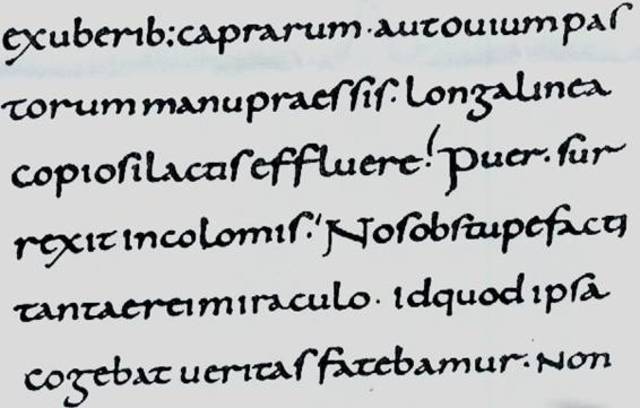 exuberib: caprarum · aut ouium pas
torum manu praessis · longa linea
copiosi lactis effluere! Puer · sur
rexit incolomis! Nos obstupefacti
tantae rei miraculo · id quod ipsa
cogebat ueritas fatebamur · Non